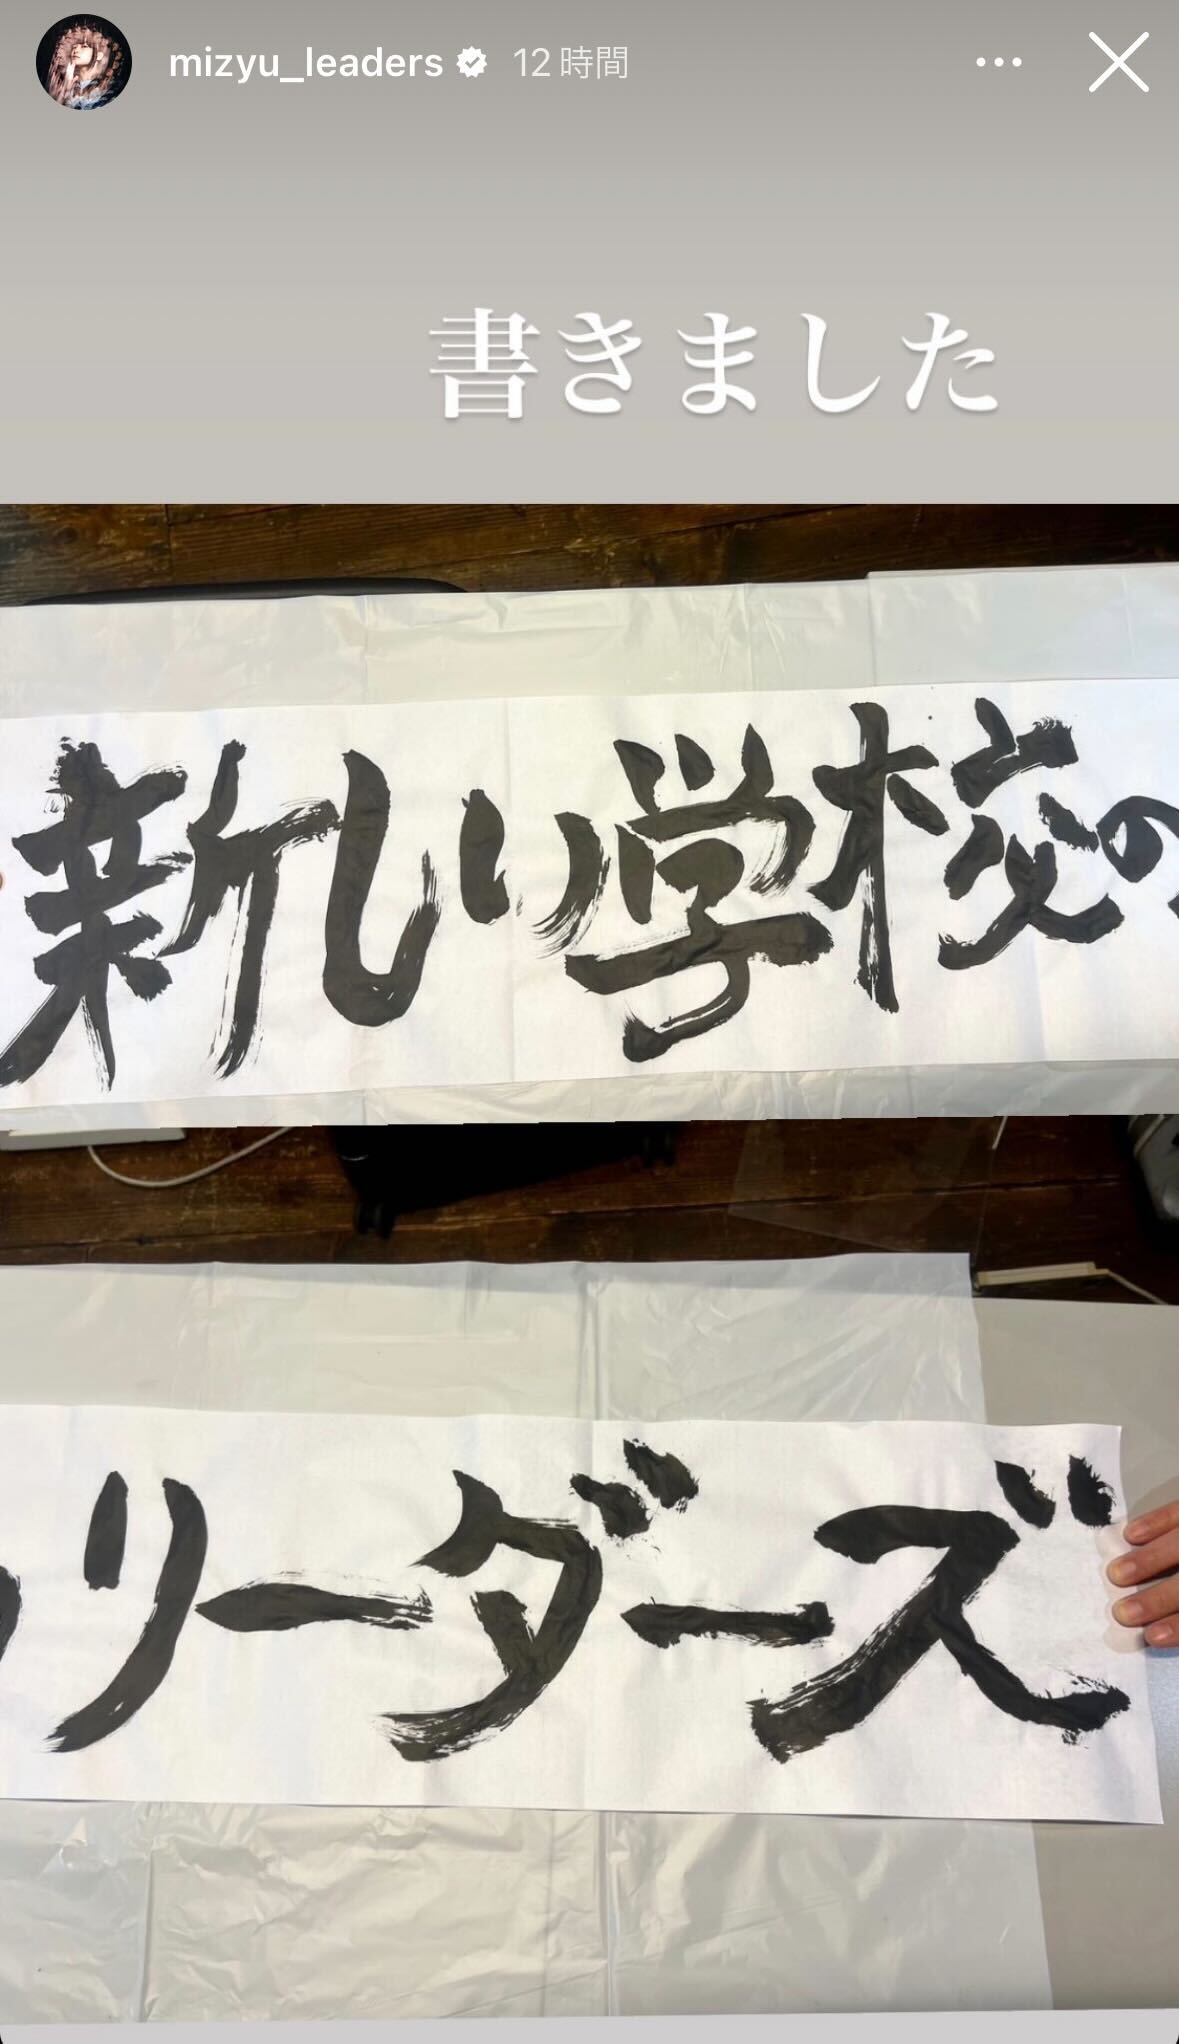 mizyu_leaders 12時間
書きました
新しい学校の
リーダーズ